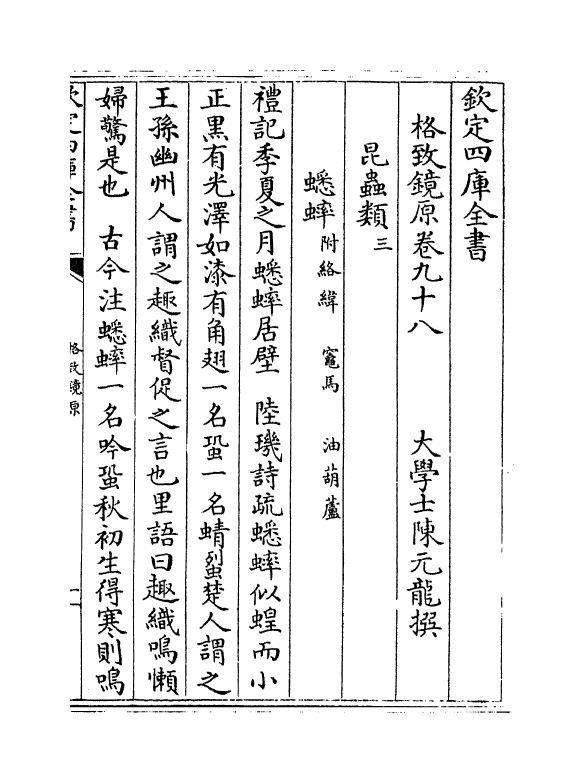 欽定四庫全書
格致鏡原卷九十八　　大學士陳元龍撰
昆蟲類三
蟋蟀附絡緯　竈馬　油葫蘆
禮記季夏之月蟋蟀居壁　陸璣詩疏蟋蟀似蝗而小
正黑有光澤如漆有角翅一名蛩一名蜻蛚楚人謂之
王孫幽州人謂之趣織督促之言也里語曰趣織鳴懶
婦驚是也　古今注蟋蟀一名吟蛩秋初生得寒則鳴
欽定四庫全書
格致鏡原
一